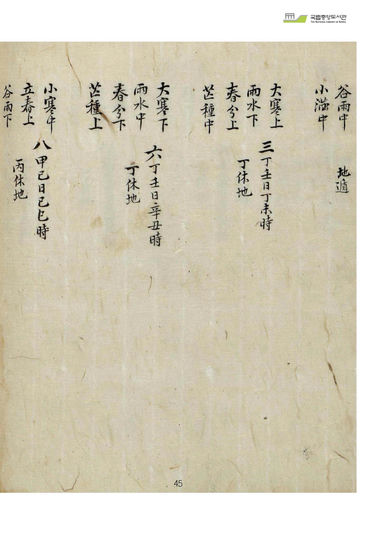 국립중앙도서관
谷雨中 地遁
小滿中
大寒上
雨水下 三丁壬日丁未時
春分上 丁休地
芒種中
大寒下
雨水中 六丁壬日辛丑時
春分下 丁休地
芒種上
小寒中
立春上 八甲己日己巳時
谷雨下 丙休地
45